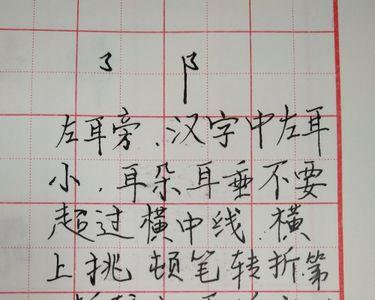 阝
左耳旁、汉字中左耳
小，耳朵耳垂不要
超过横中线.横
上挑顿笔转折第